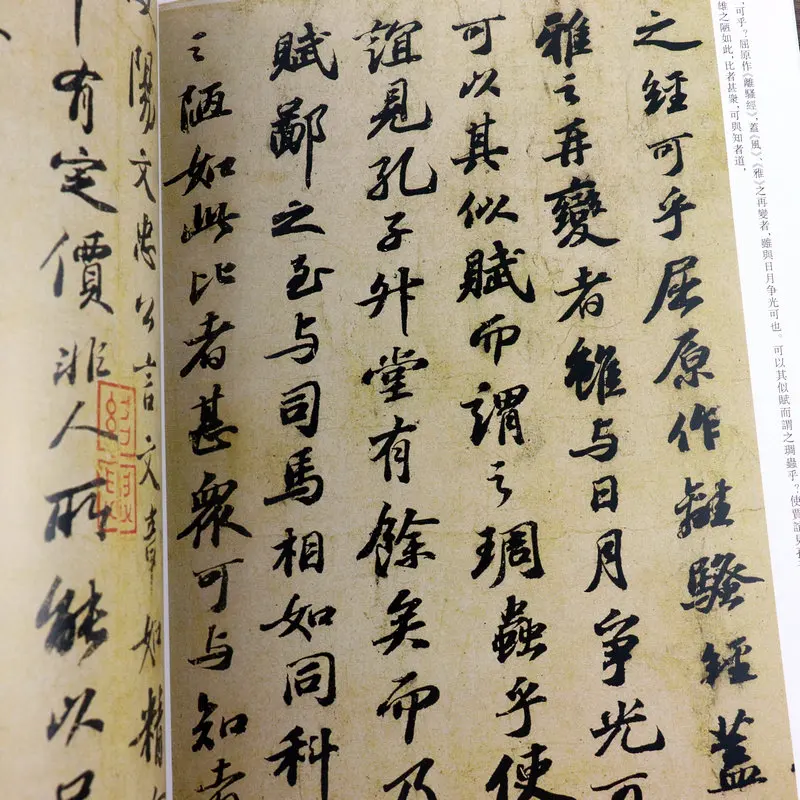 可乎?屈原作《離騷經》,蓋《風》、《雅》之再變者,雖與日月争光可也。可以其似賦而謂之琱蟲乎?使賈誼見
雄之陋如此,比者甚衆,可與知者道,
之經可乎屈原作離騷經蓋
雅之再變者雖与日月爭光可
可以其似賦而謂之琱蟲乎使
誼見孔子升堂有餘矣而乃
賦鄙之至与司馬相如同科
之陋如此比者甚衆可与知者
陽文忠公言文章如精
有定價非人所能以口